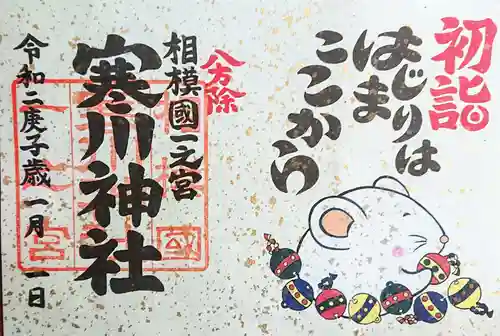 初詣
はじりは
はじま
ここから
八方除
相模國一之宮
寒川神社
令和二庚子歳一月一日